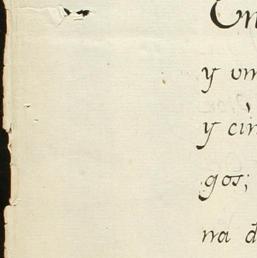 En
y um
y cin
gos;
na d